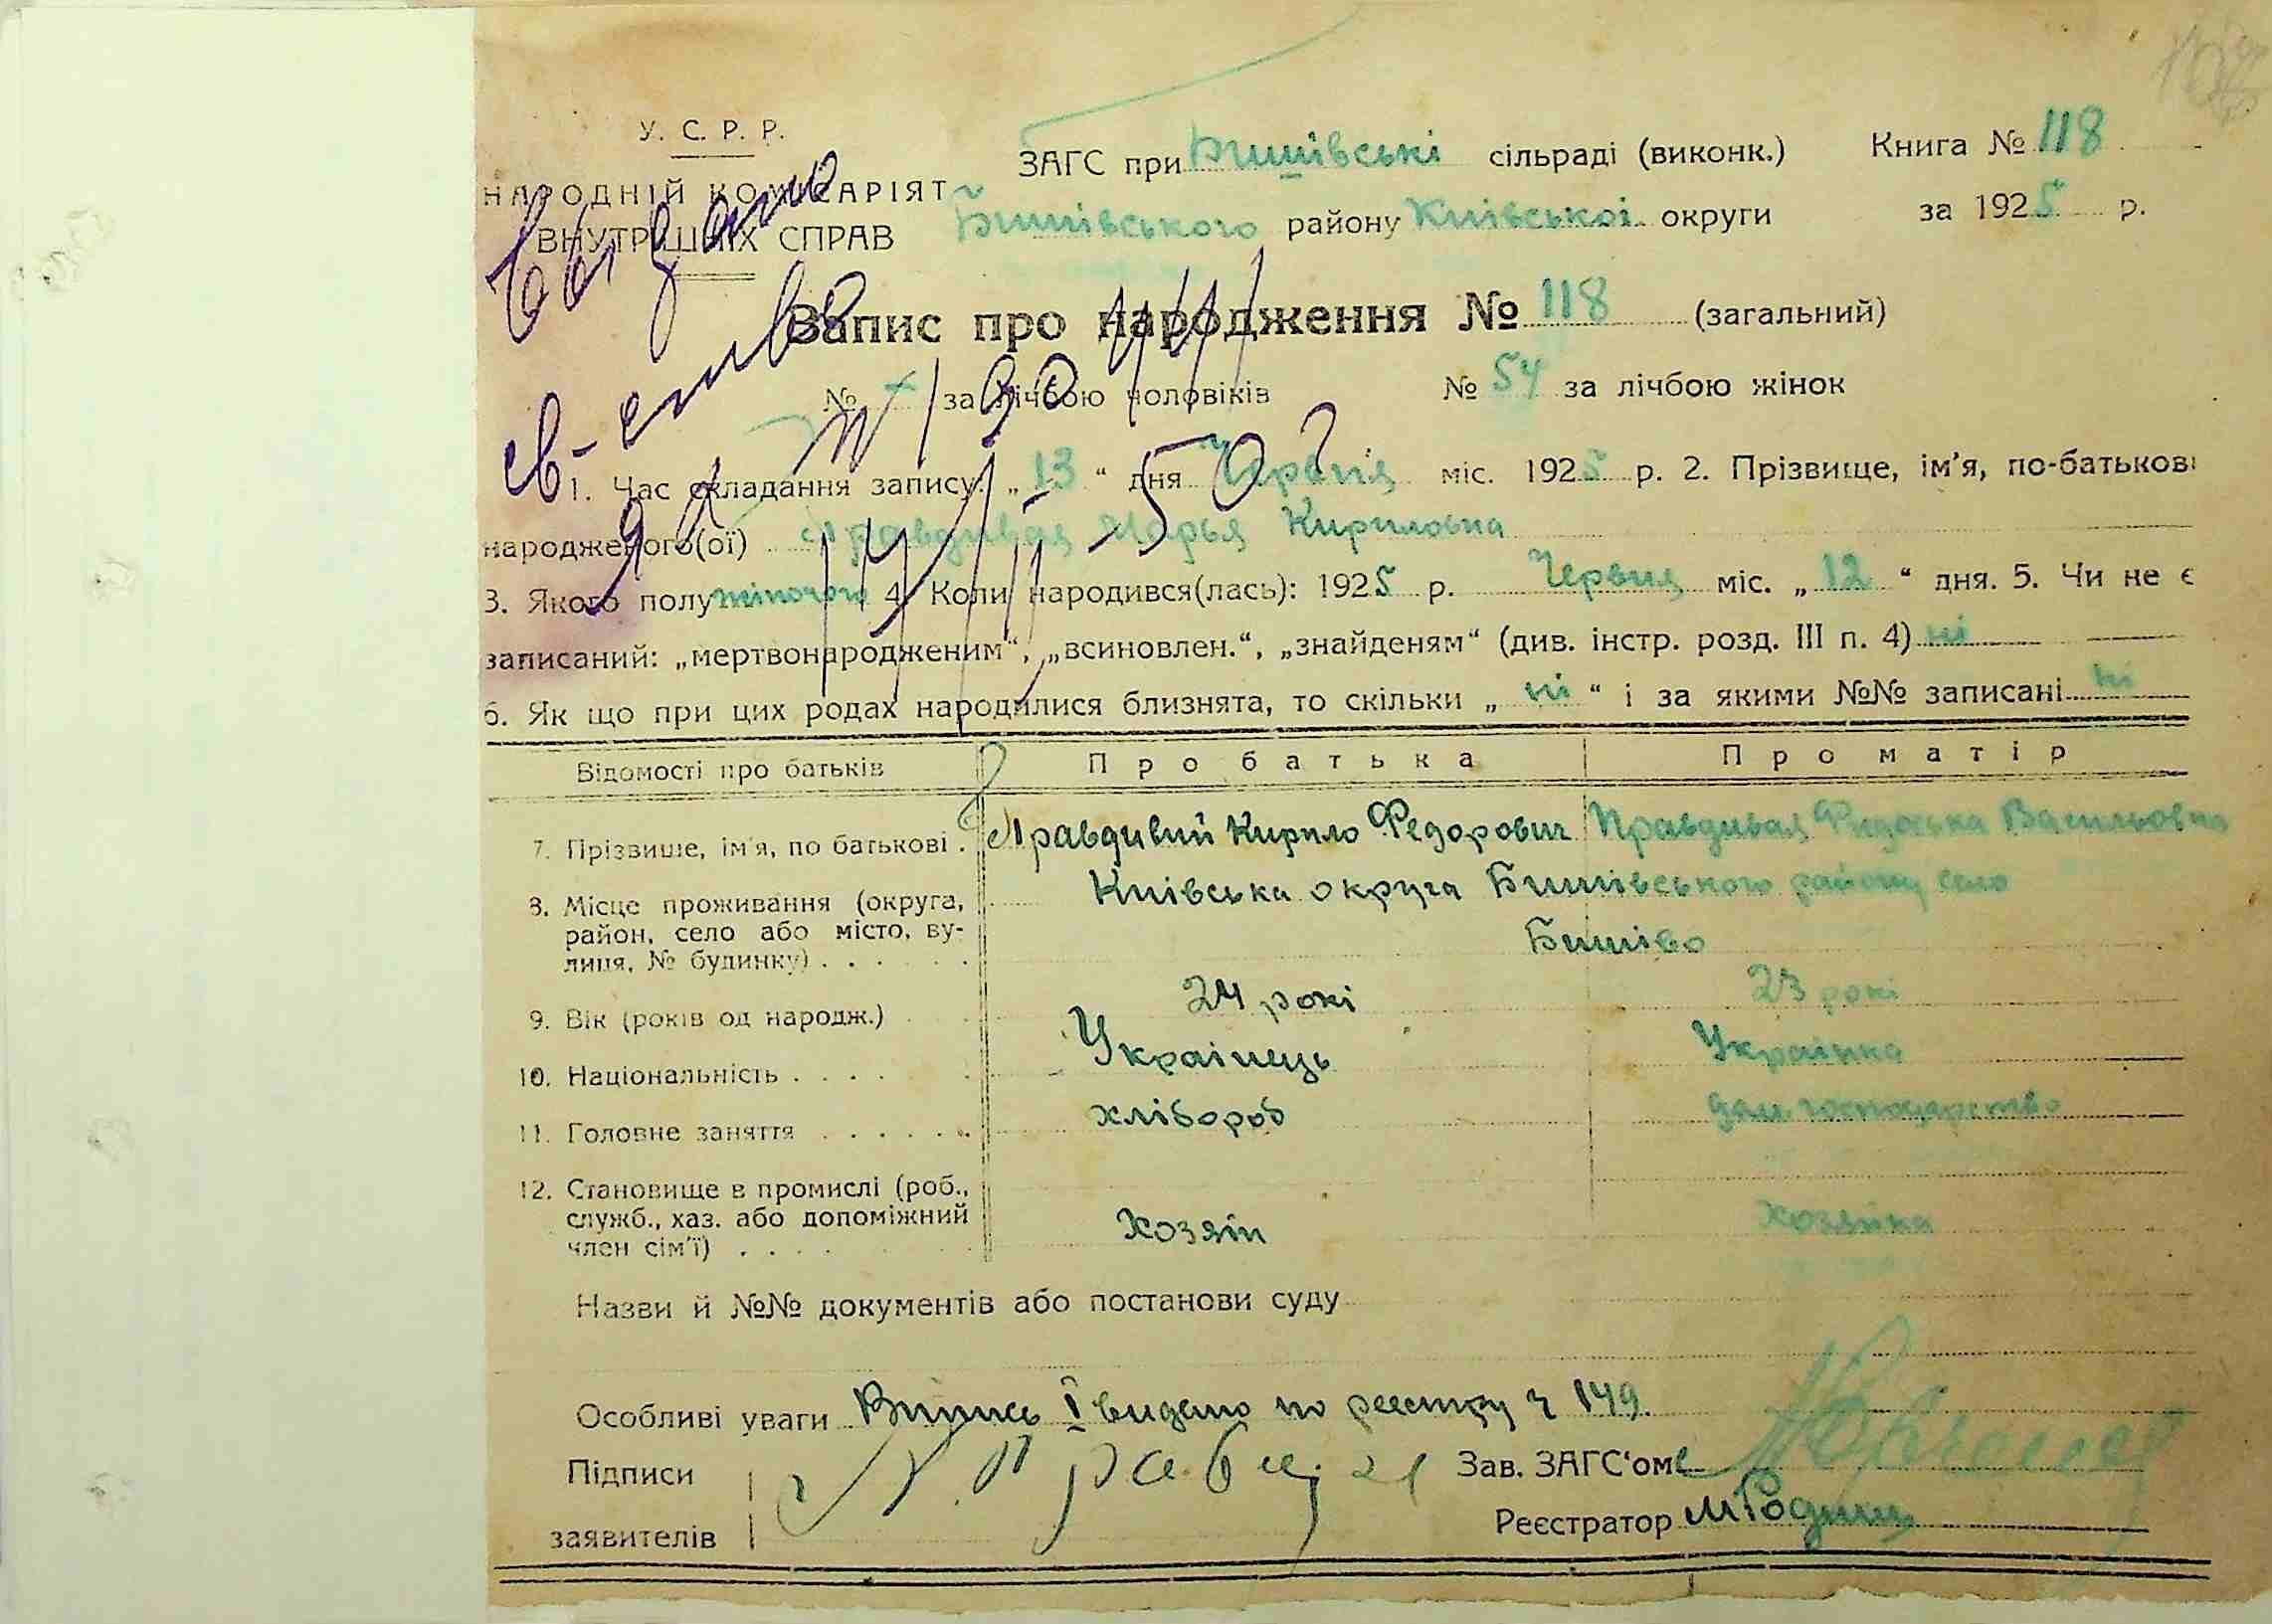 У. С. Р. Р.
НАРОДНІЙ КОМІСАРІЯТ
ВНУТРІШНІХ СПРАВ
ЗАГС при Бишівські сільраді (виконк.)
Бишівського району Київської округи
Книга № 118
за 1925 р.
Запис про народження № 118 (загальний)
№ за лічбою чоловіків № 54 за лічбою жінок
1. Час складання запису: „13“ дня Червня міс. 1925 р. 2. Прізвище, ім'я, по-батькові
народженого(ої) Правдивая Марья Кириловна
3. Якого полу жіночого 4. Коли народився(лась): 1925 р. Червня міс. „12“ дня. 5. Чи не є
записаний: „мертвонародженим“, „всиновлен.“, „знайденям“ (див. інстр. розд. III п. 4) ні
6. Як що при цих родах народилися близнята, то скільки „ні“ і за якими №№ записані ні
Відомості про батьків Про батька Про матір
7. Прізвище, ім'я, по батькові . Правдивий Кирило Федорович Правдивая Васильовна
8. Місце проживання (округа, район, село або місто, вулиця, № будинку) . . . . . . Київська округа Бишівського району село
Бишів
9. Вік (років од народж.) 24 рокі 23 рокі
10. Національність . . . . Українець Українка
11. Головне заняття . . . . . . хлібороб дом. господарство
12. Становище в промислі (роб., служб., хаз. або допоміжний член сім'ї) . . . . хозяін хозяйка
Назви й №№ документів або постанови суду
Особливі уваги Випись І видано по реєстру ч 149.
Підписи
заявителів
Зав. ЗАГС'ом
Реєстратор
Выдано
св-ство